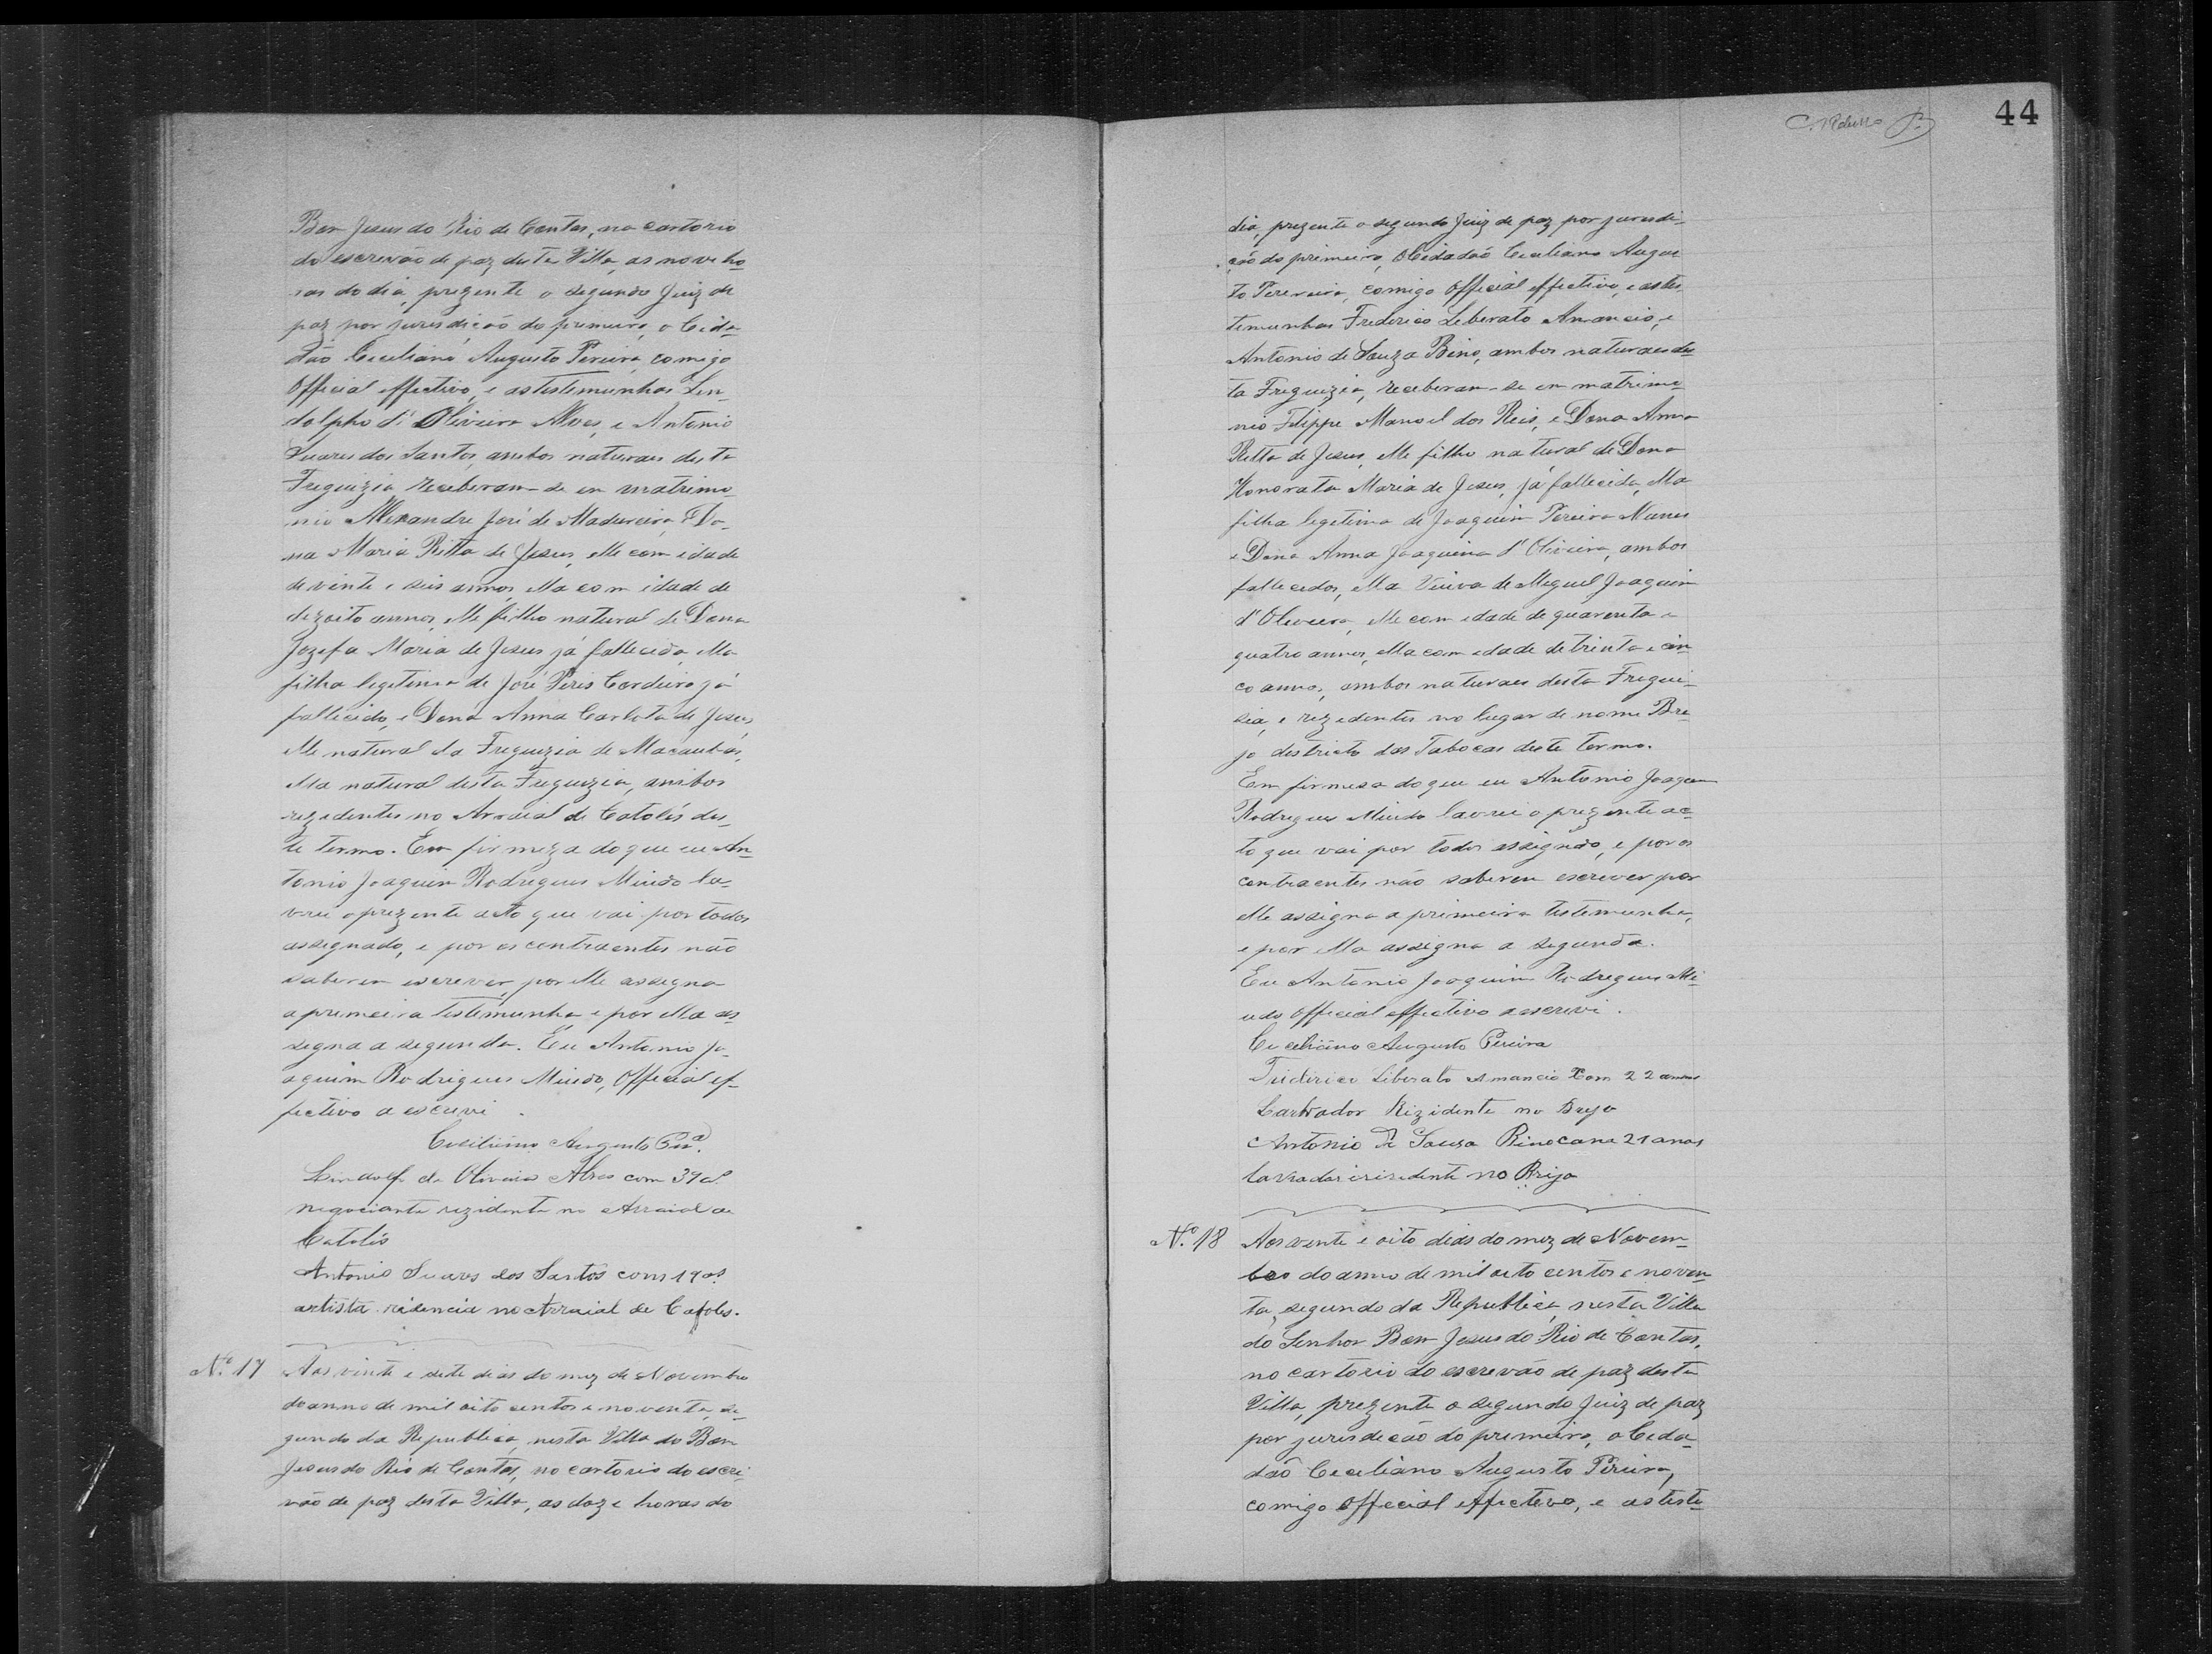 Bom Jesus do Rio de Contas, no cartorio
do escrevão de paz desta Villa, as nove ho-
ras do dia, prezente o segundo Juiz de
paz por jurisdição do primeiro, o Cida-
dão Ceciliano Augusto Pereira, comigo
Official effectivo, e as testemunhas Lin-
dolpho d'Oliveira Alves, e Antonio
Suares dos Santos, ambos naturaes desta
Freguizia receberam-se em matrimo-
nio Alexandre José de Madureira, e Do-
na Maria Ritta de Jesus, elle com idade
de vinte e seis annos, ella com idade de
dezoito annos, elle filho natural de Dona
Jozefa Maria de Jesus já fallecida, ella
filha legitima de José Peris Cordeiro já
fallecido, e Dona Anna Carlota de Jesus,
elle natural da Freguizia de Macaubas,
ella natural desta Freguizia, ambos
rezedentes no Arraial de Catolés des-
te termo. Em firmeza do que eu An-
tonio Joaquim Rodrigues Miudo la-
vrei o prezente acto que vai por todos
assignado, e por os contraentes não
saberem escrever, por elle assigna
a primeira testemunha e por ella as-
signa a segunda. Eu Antonio Jo-
aquim Rodrigues Miudo, Official ef-
fectivo a escrevi.
Ceciliano Augusto Pra.
Lindolfo de Oliveira Alves com 39 as.
negociante rezidente no Arraial de
Catolés
Antonio Suares dos Santos com 19 as.
artista no Arraial de Catoles.
N.º 17 Aos vinte e sete dias do mez de Novembro
do anno de mil oito centos e noventa, se-
gundo da Republica, nesta Villa do Bom
Jesus do Rio de Contas, no cartorio do escri-
vão de paz desta Villa, as doze horas do
44
dia, prezente o segundo Juiz de paz por jurisdi-
ção do primeiro, o Cidadão Ceciliano Augus
to Perereira, comigo Official effectivo, e as tes
temunhas Frederico Leberato Amancio, e
Antonio de Souza Bino, ambos naturaes des
ta Freguizia, receberam-se em matrimo
nio Filippe Manoel dos Reis, e Dona Anna
Ritta de Jesus, elle filho natural de Dona
Honorata Maria de Jesus, já fallecida, ella
filha legetima de Joaquim Pereira Nunes
e Dona Anna Joaquina d'Oliveira, ambos
fallecidos, ella Viuva de Meguel Joaquim
d'Oliveira, elle com edade de quarenta e
quatro annos, ella com edade de trinta e cin
co annos, ambos naturaes desta Fregui-
sia, e rezedentes no lugar de nome Bre
jo destricto das Tabocas deste termo.
Em firmesa do que eu Antonio Joaquim
Rodrigues Miudo lavrei o prezente ac
to que vai por todos assignado, e por os
contraentes não saberem escrever por
elle assigna a primeira testemunha,
e por ella assigna a segunda.
Eu Antonio Joaquim Rodrigues Mi
udo Official effectivo a escrevi.
Ceceliano Augusto Pereira
Friderico Liberato Amancio Com 22 annos
Larvador Rizidente no Brejo
Antonio de Sousa 21 anos
no Brijo
N.º 18 Aos vente e oito dias do mez de Novem-
bro do anno de mil oito centos e noven
ta, segundo da Republica, nesta Villa
do Senhor Bom Jesus do Rio de Contas,
no cartorio do escrevão de paz desta
Villa, prezente o segundo Juiz de paz
por jurisdicão do primeiro, o Ceda-
dão Ceceliano Augusto Pereira,
comigo Offecial effectevo, e as teste-